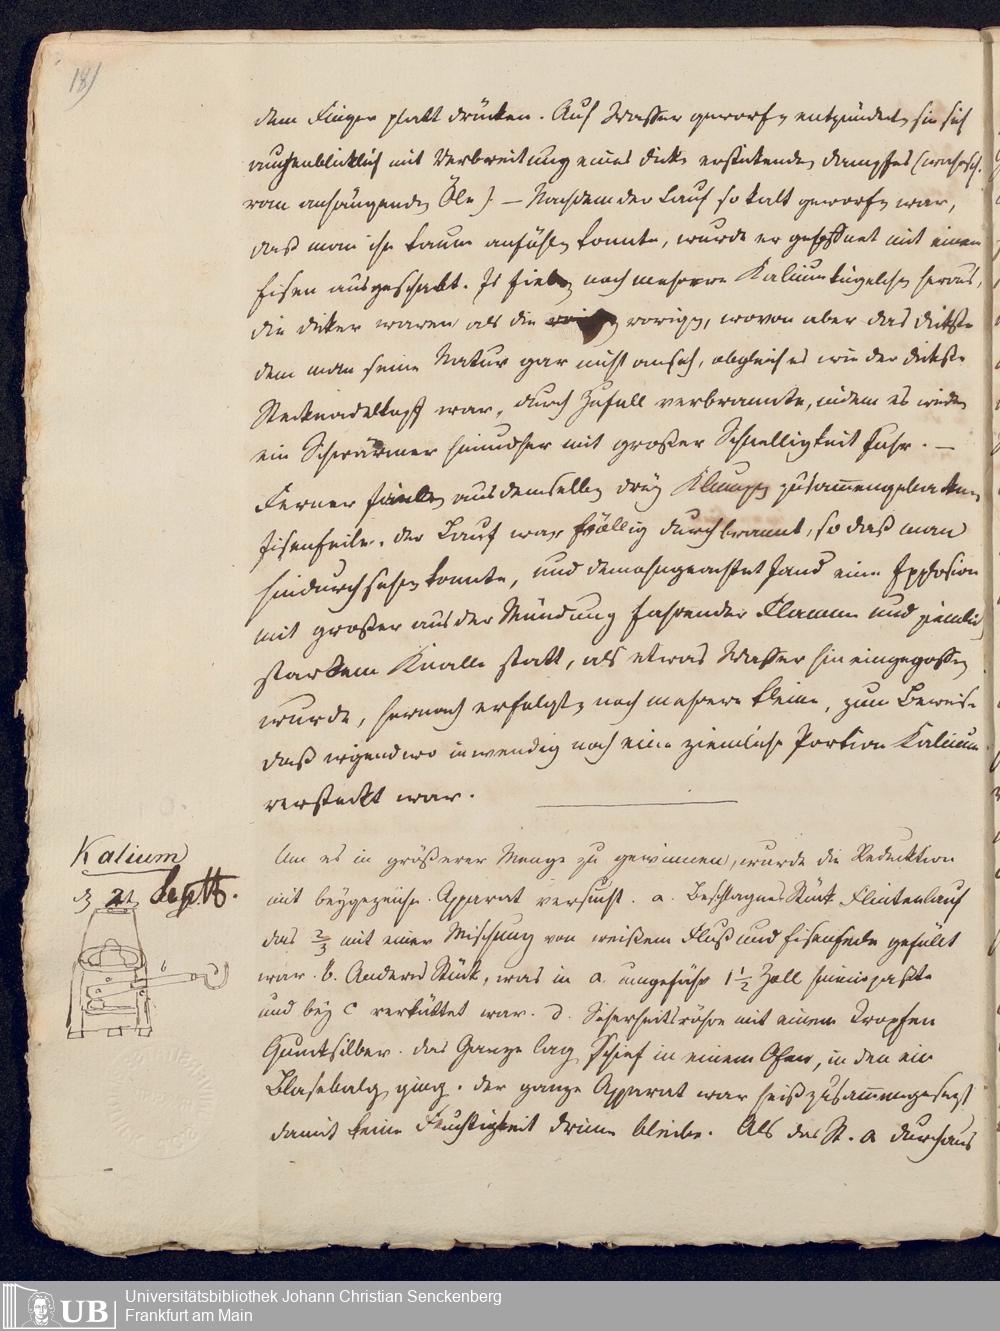 18)
dem Finger platt drücken. Auf Wasser geworfen entzündete sie sich
augenblicklich mit Verbreitung eines dicken erstickenden Dampfes (wahrsch.
vom anhängenden Öle) – Nachdem der Lauf so kalt geworfen war,
daß man ihn kaum anfühlen konnte, wurde er geöffnet mit einem
Eisen ausgeschabt. Es fielen noch mehrere Kaliumkügelchen heraus,
die dicker waren als die vorigen, wovon aber das dickste
dem man seine Natur gar nicht ansah, obgleich es wie der dickste
Stecknadelkopf war, durch Zufall verbrannte, indem es wieder
ein Schwärmer hin und her mit großer Schnelligkeit fuhr. –
Ferner fielen aus demselben drey Klumpen zusammengebackene
Eisenfeile. Der Lauf war völlig durchbrannt, so daß man
hindurchsehen konnte, und demohngeachtet fand eine Explosion
mit großer aus der Mündung fahrender Flamme und ziemlich
starkem Knalle statt, als etwas Wasser hineingegossen
wurde, hernach erfolgten noch mehrere kleine, zum Beweise
daß irgendwo inwendig noch eine ziemliche Portion Kalium
versteckt war.
Kalium
d 21 Septb.
b
Um es in größerer Menge zu gewinnen, wurde die Reduktion
mit beygezeichn. Apparat versucht. a. Beschlagnes Stück Flintenlauf
das 2/3 mit einer Mischung von weißem Fluß und Eisenfeile gefüllt
war. b. Anderes Stück, was in a. ungefähr 1 1/2 Zoll hineinpaßte
und bey c verkittet war. d. Sicherheitsröhre mit einem Tropfen
Quecksilber. Das Ganze lag schief in einem Ofen, in den ein
Blasebalg ging. Der ganze Apparat war heiß zusammengesetzt
damit keine Feuchtigkeit drinne bleibe. Als das St. a durchaus
UB
Universitätsbibliothek Johann Christian Senckenberg
Frankfurt am Main